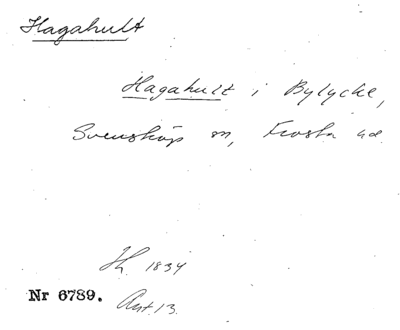 Hagahult
Hagahult i Bylycke,
Svensköp sn, Frosta hd.
Hh. 1834
Nr 6789. Ant. 13.